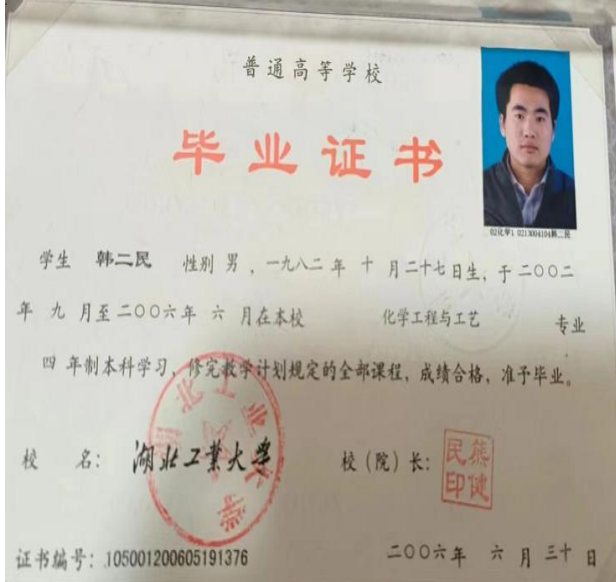 普通高等学校
毕业证书
02化学1 0213004104韩二民
学生 韩二民 性别 男 ,一九八二 年 十 月二十七日生,于二〇〇二
年 九 月至二〇〇六年 六 月在本校 化学工程与工艺 专业
四 年制本科学习,修完教学计划规定的全部课程,成绩合格,准予毕业。
校 名: 湖北工業大學 校(院)长: 熊健民印
湖北工业大学
证书编号:105001200605191376 二〇〇六年 六 月 三十 日